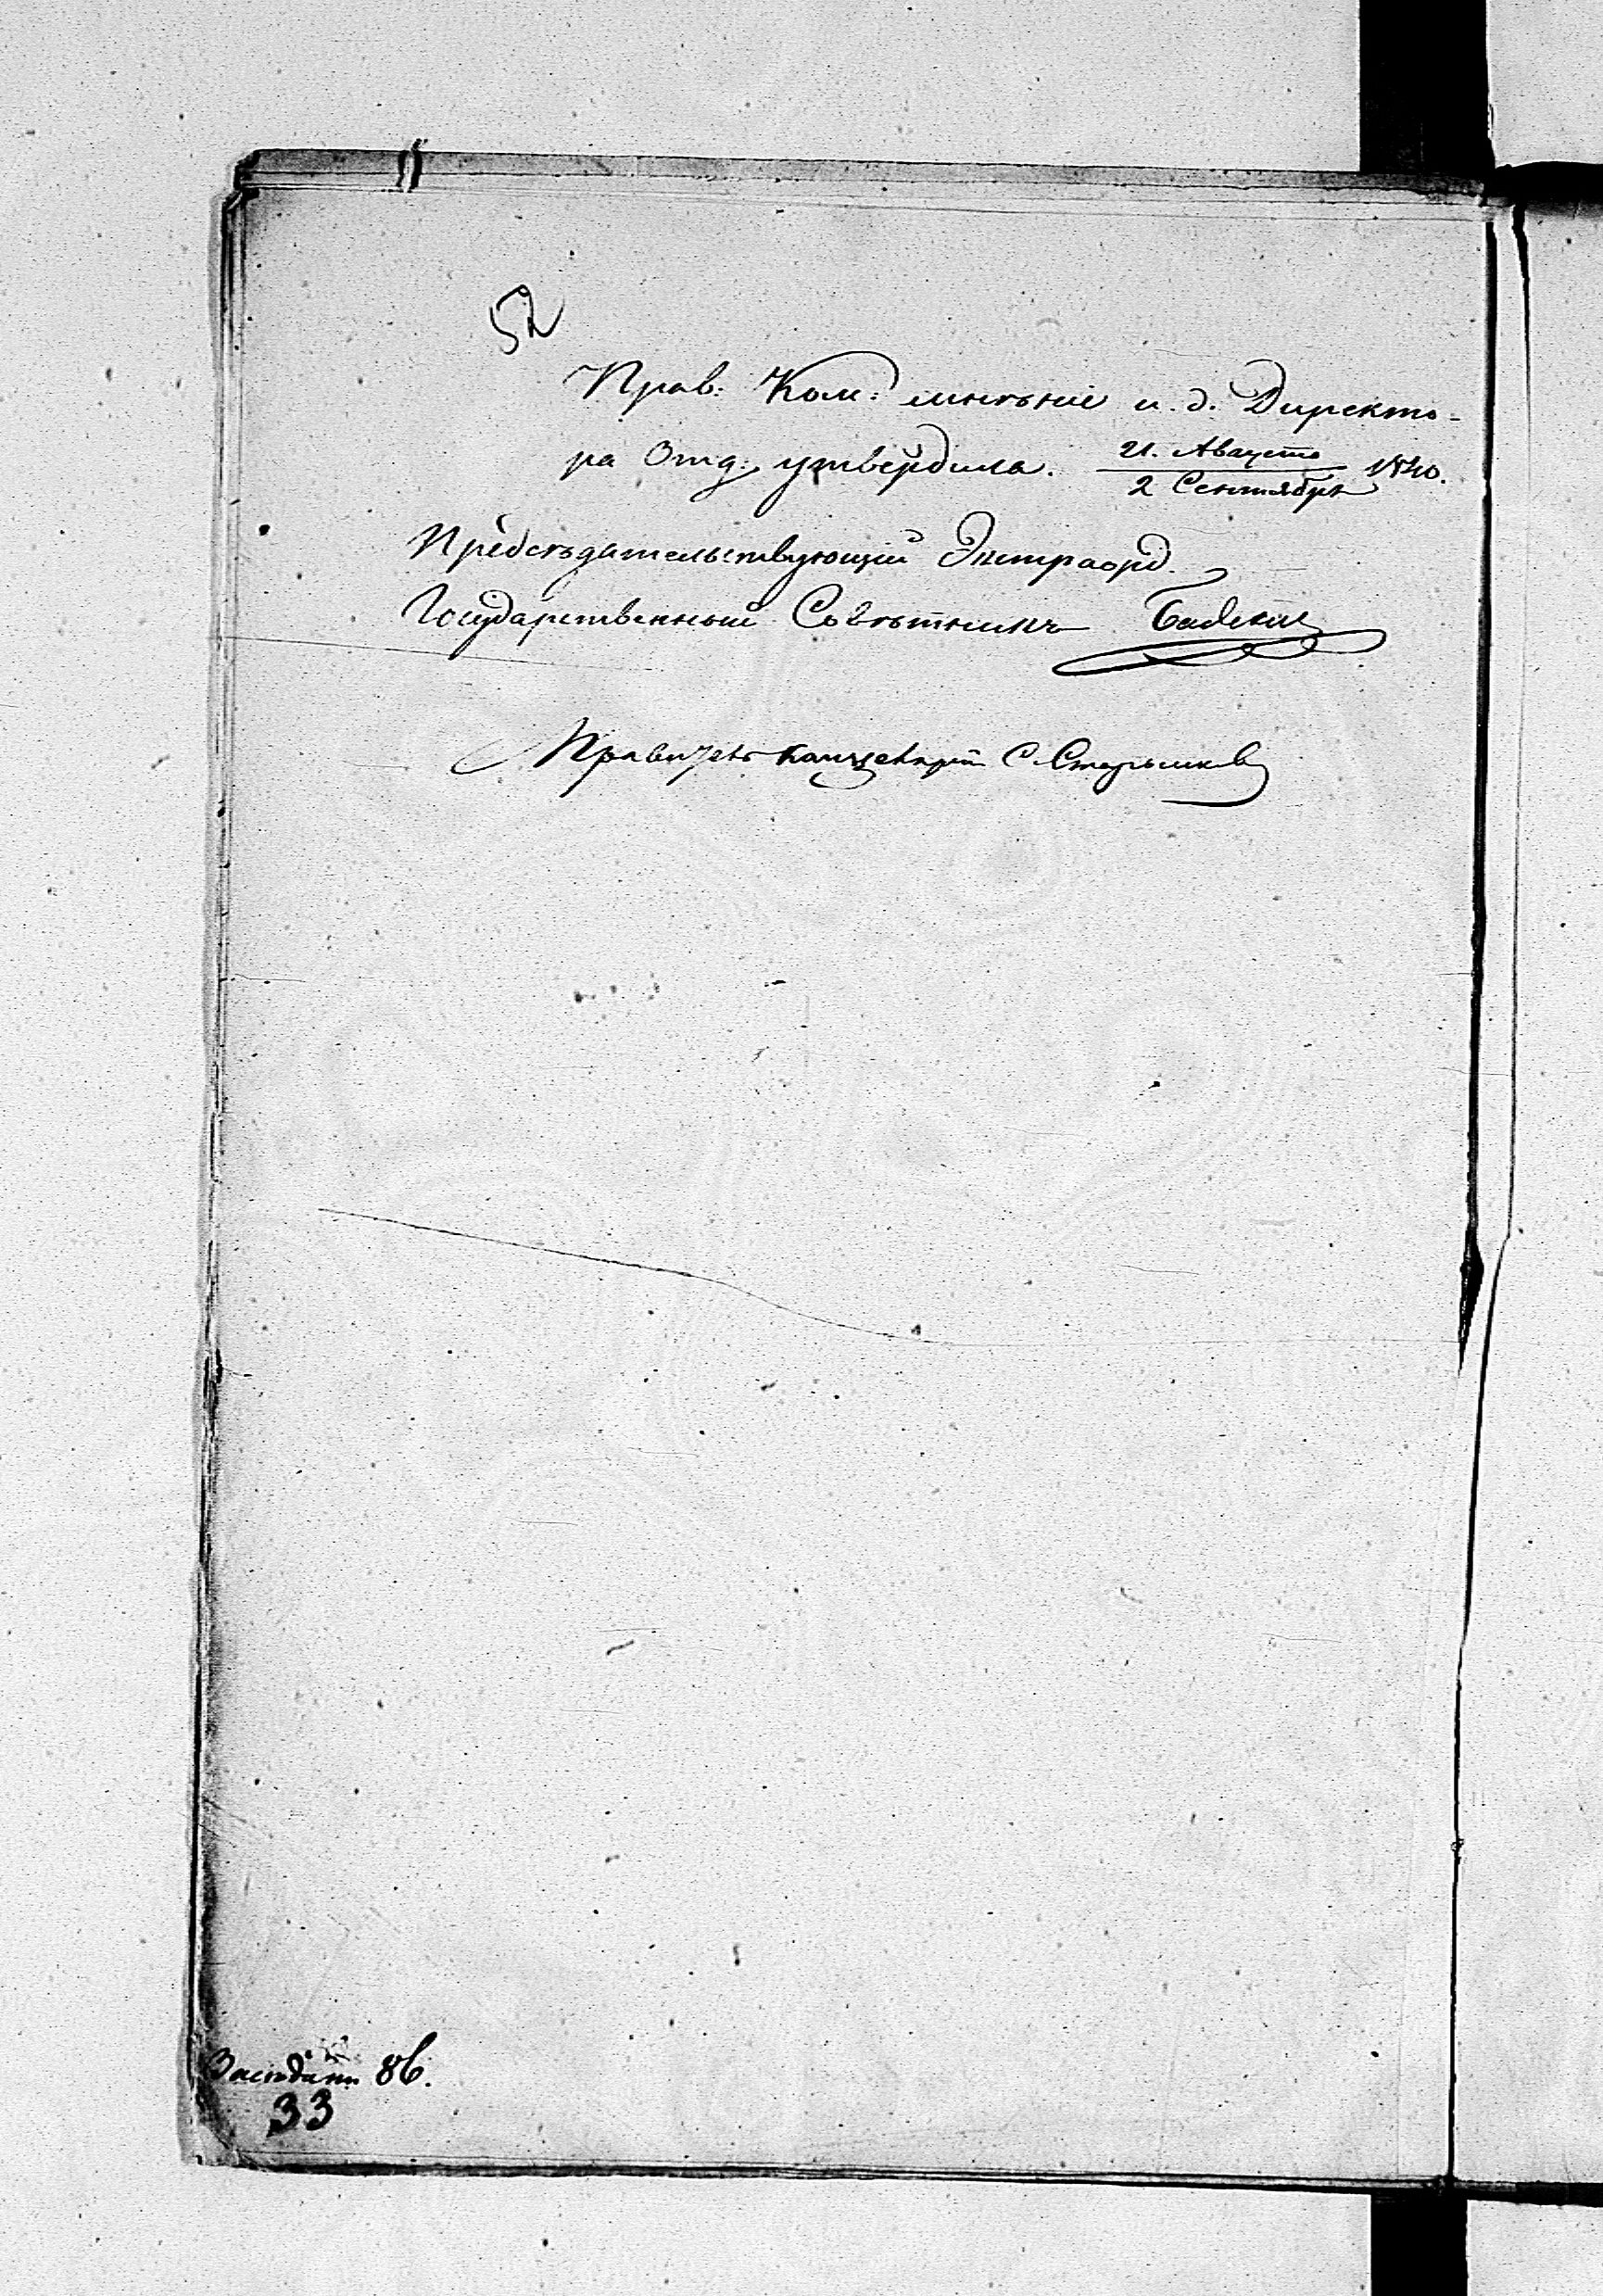 52
Прав: Ком: мнѣніе и. д. Директо-
ра Отд: утвердила. 21. Августа / 2 Сентября 1840.
Предсѣдательствующій Экстраорд.
Государственный Совѣтникъ
Правитель Канцеляріи С.
Засѣдан. 86.
33